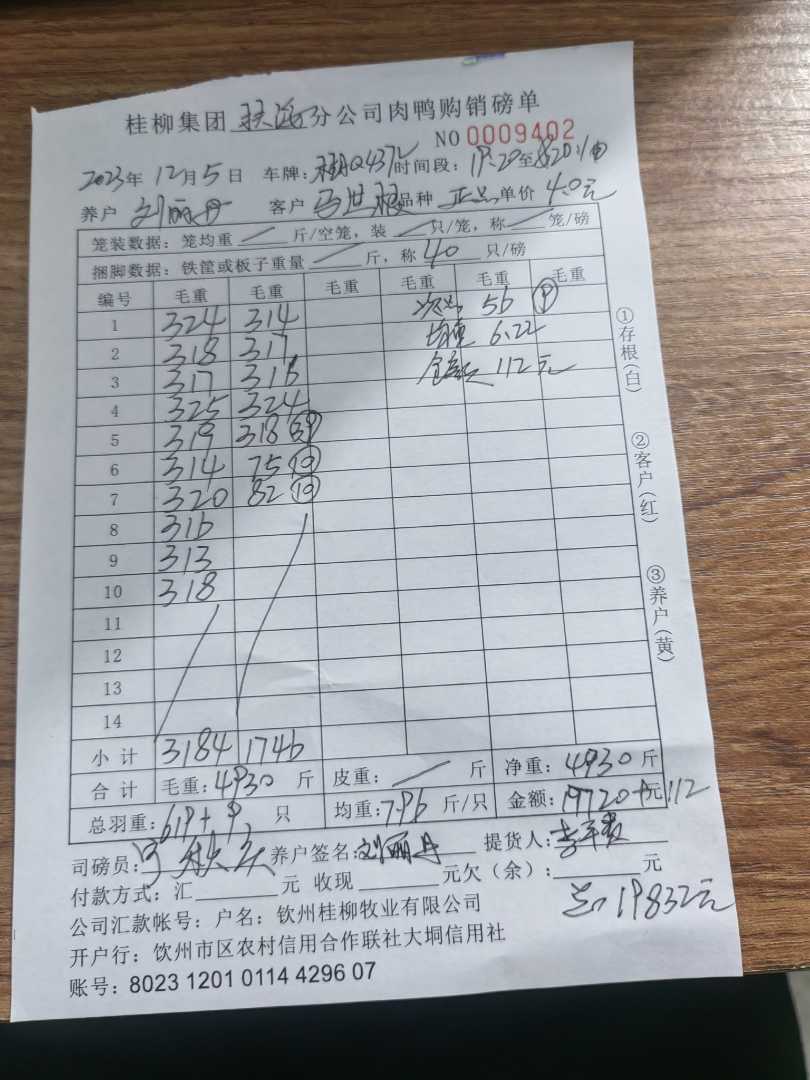 桂柳集团 分公司肉鸭购销磅单
NO 0009402
2023年 12月5日 车牌: 时间段: 19:20至
养户 刘丽丹 客户 马世 品种 正品 单价 4.0元
笼装数据：笼均重 / 斤/空笼，装 / 只/笼，称 / 笼/磅
捆脚数据：铁筐或板子重量 / 斤，称 40 只/磅
编号 毛重 毛重 毛重 毛重 毛重 毛重
1 324 314 次品 56 ⑨
2 318 317 均重 6.22
3 317 316 金额 112元
4 325 324
5 319 318 39
6 314 75 ⑩
7 320 82 ⑩
8 316
9 313
10 318
11
12
13
14
小计 3184 1746
合计 毛重：4930 斤 皮重： / 斤 净重：4930 斤
总羽重：619+9 只 均重：7.96 斤/只 金额：19720+元112
司磅员： 养户签名：刘丽丹 提货人：
付款方式：汇 元 收现 元欠（余）： 元
公司汇款帐号：户名：钦州桂柳牧业有限公司
总 19832元
开户行：钦州市区农村信用合作联社大垌信用社
账号：8023 1201 0114 4296 07
①存根（白）
②客户（红）
③养户（黄）